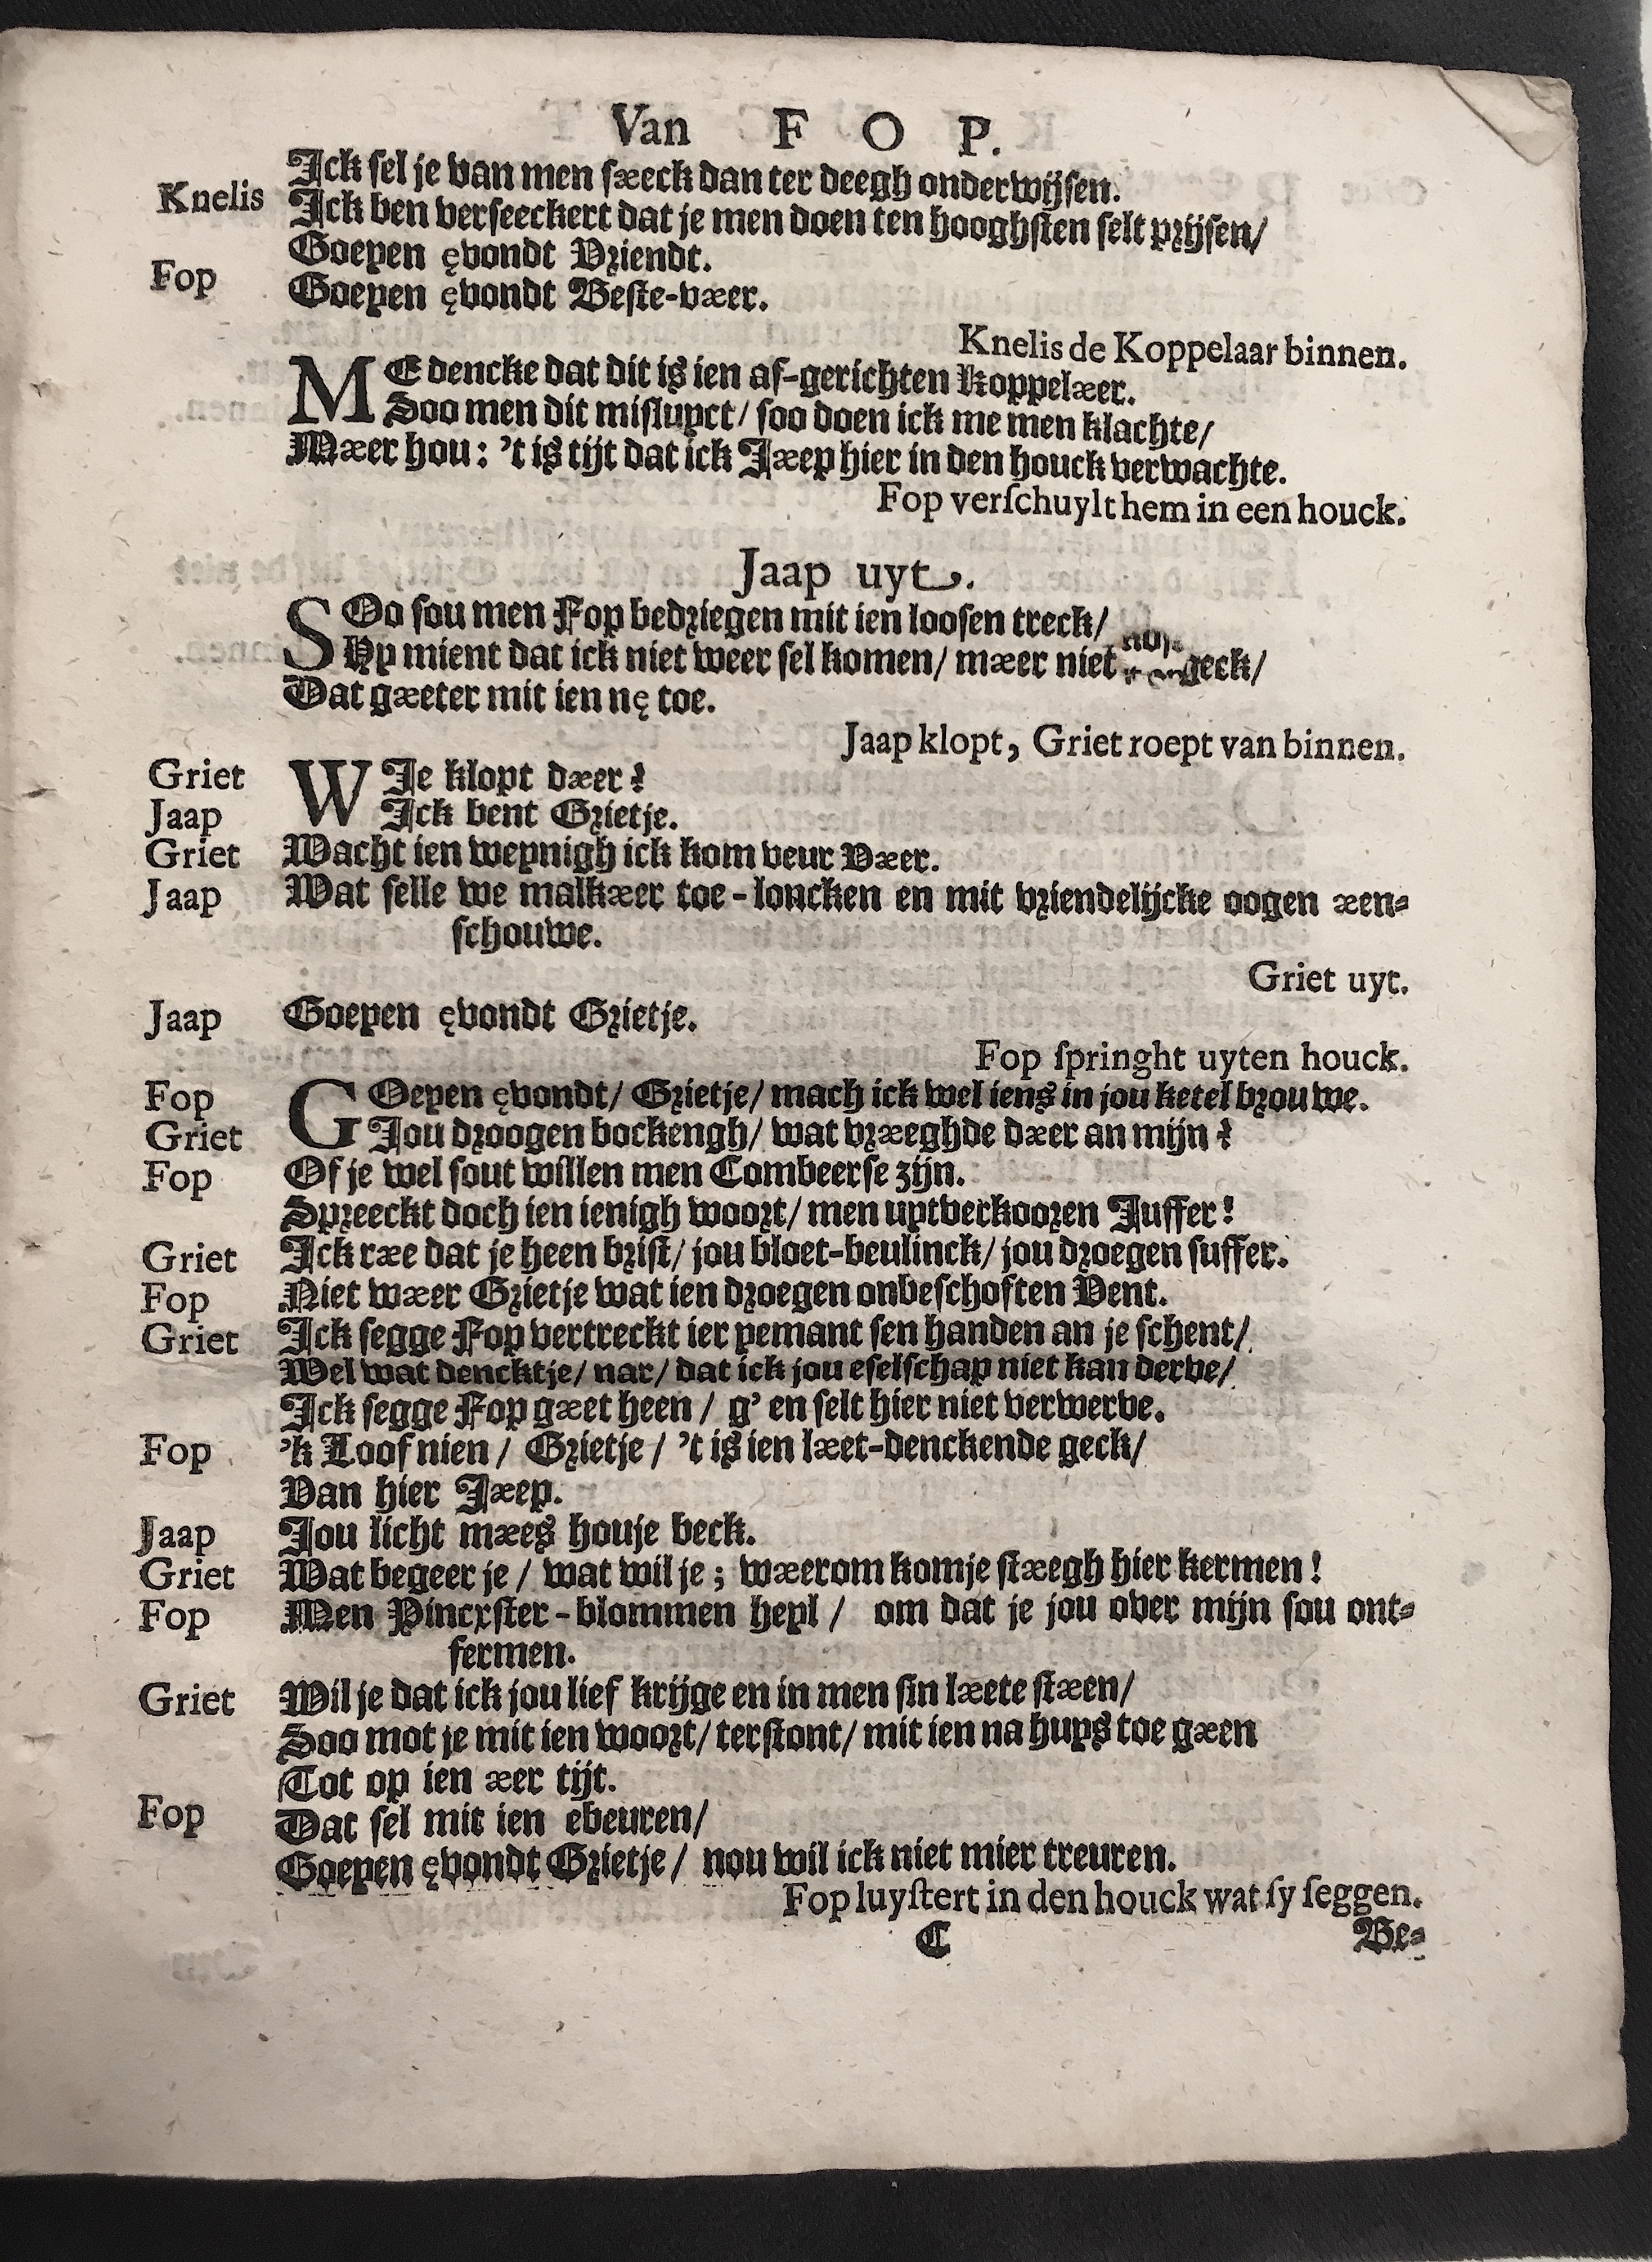 Van F O P.
Ick sel je van men sæeck dan ter deegh onderwijsen.
Knelis Ick ben verseeckert dat je men doen ten hooghsten selt prijsen/
Goeyen ęvondt Vriendt.
Fop Goeyen ęvondt Beste-væer.
Knelis de Koppelaar binnen.
ME dencke dat dit is ien af-gerichten Koppelæer.
Soo men dit misluyct/ soo doen ick me men klachte/
Mæer hou: 't is tijt dat ick Jæep hier in den houck verwachte.
Fop verſchuylt hem in een houck.
Jaap uyt.
SOo sou men Fop bedriegen mit ien loosen treck/
Hy mient dat ick niet weer sel komen/ mæer niet geck/
Dat gæeter mit ien nę toe.
Jaap klopt, Griet roept van binnen.
Griet WIe klopt dæer?
Jaap Ick bent Grietje.
Griet Wacht ien weynigh ick kom veur Væer.
Jaap Wat selle we malkæer toe-loncken en mit vriendelijcke oogen æen-
schouwe.
Griet uyt.
Jaap Goeyen ęvondt Grietje.
Fop ſpringht uyten houck.
Fop GOeyen ęvondt/ Grietje/ mach ick wel iens in jou ketel brouwe.
Griet Jou droogen bockengh/ wat vræeghde dæer an mijn?
Fop Of je wel sout willen men Combeerse zijn.
Spreeckt doch ien ienigh woort/ men uytverkooren Juffer!
Griet Ick ræe dat je heen brist/ jou bloet-beulinck/ jou droegen suffer.
Fop Niet wæer Grietje wat ien droegen onbeschoften Vent.
Griet Ick segge Fop vertreckt ier yemant sen handen an je schent/
Wel wat dencktje/ nar/ dat ick jou eselschap niet kan derve/
Ick segge Fop gæet heen/ g' en selt hier niet verwerve.
Fop 'k Loof nien/ Grietje/ 't is ien læet-denckende geck/
Van hier Jæep.
Jaap Jou licht mæes houje beck.
Griet Wat begeer je/ wat wil je; wæerom komje stæegh hier kermen!
Fop Men Pincxster-blommen heyl/ om dat je jou over mijn sou ont-
fermen.
Griet Wil je dat ick jou lief krijge en in men sin læete stæen/
Soo mot je mit ien woort/ terstont/ mit ien na huys toe gæen
Tot op ien æer tijt.
Fop Dat sel mit ien ebeuren/
Goeyen ęvondt Grietje/ nou wil ick niet mier treuren.
Fop luyſtert in den houck wat ſy ſeggen.
C Be-